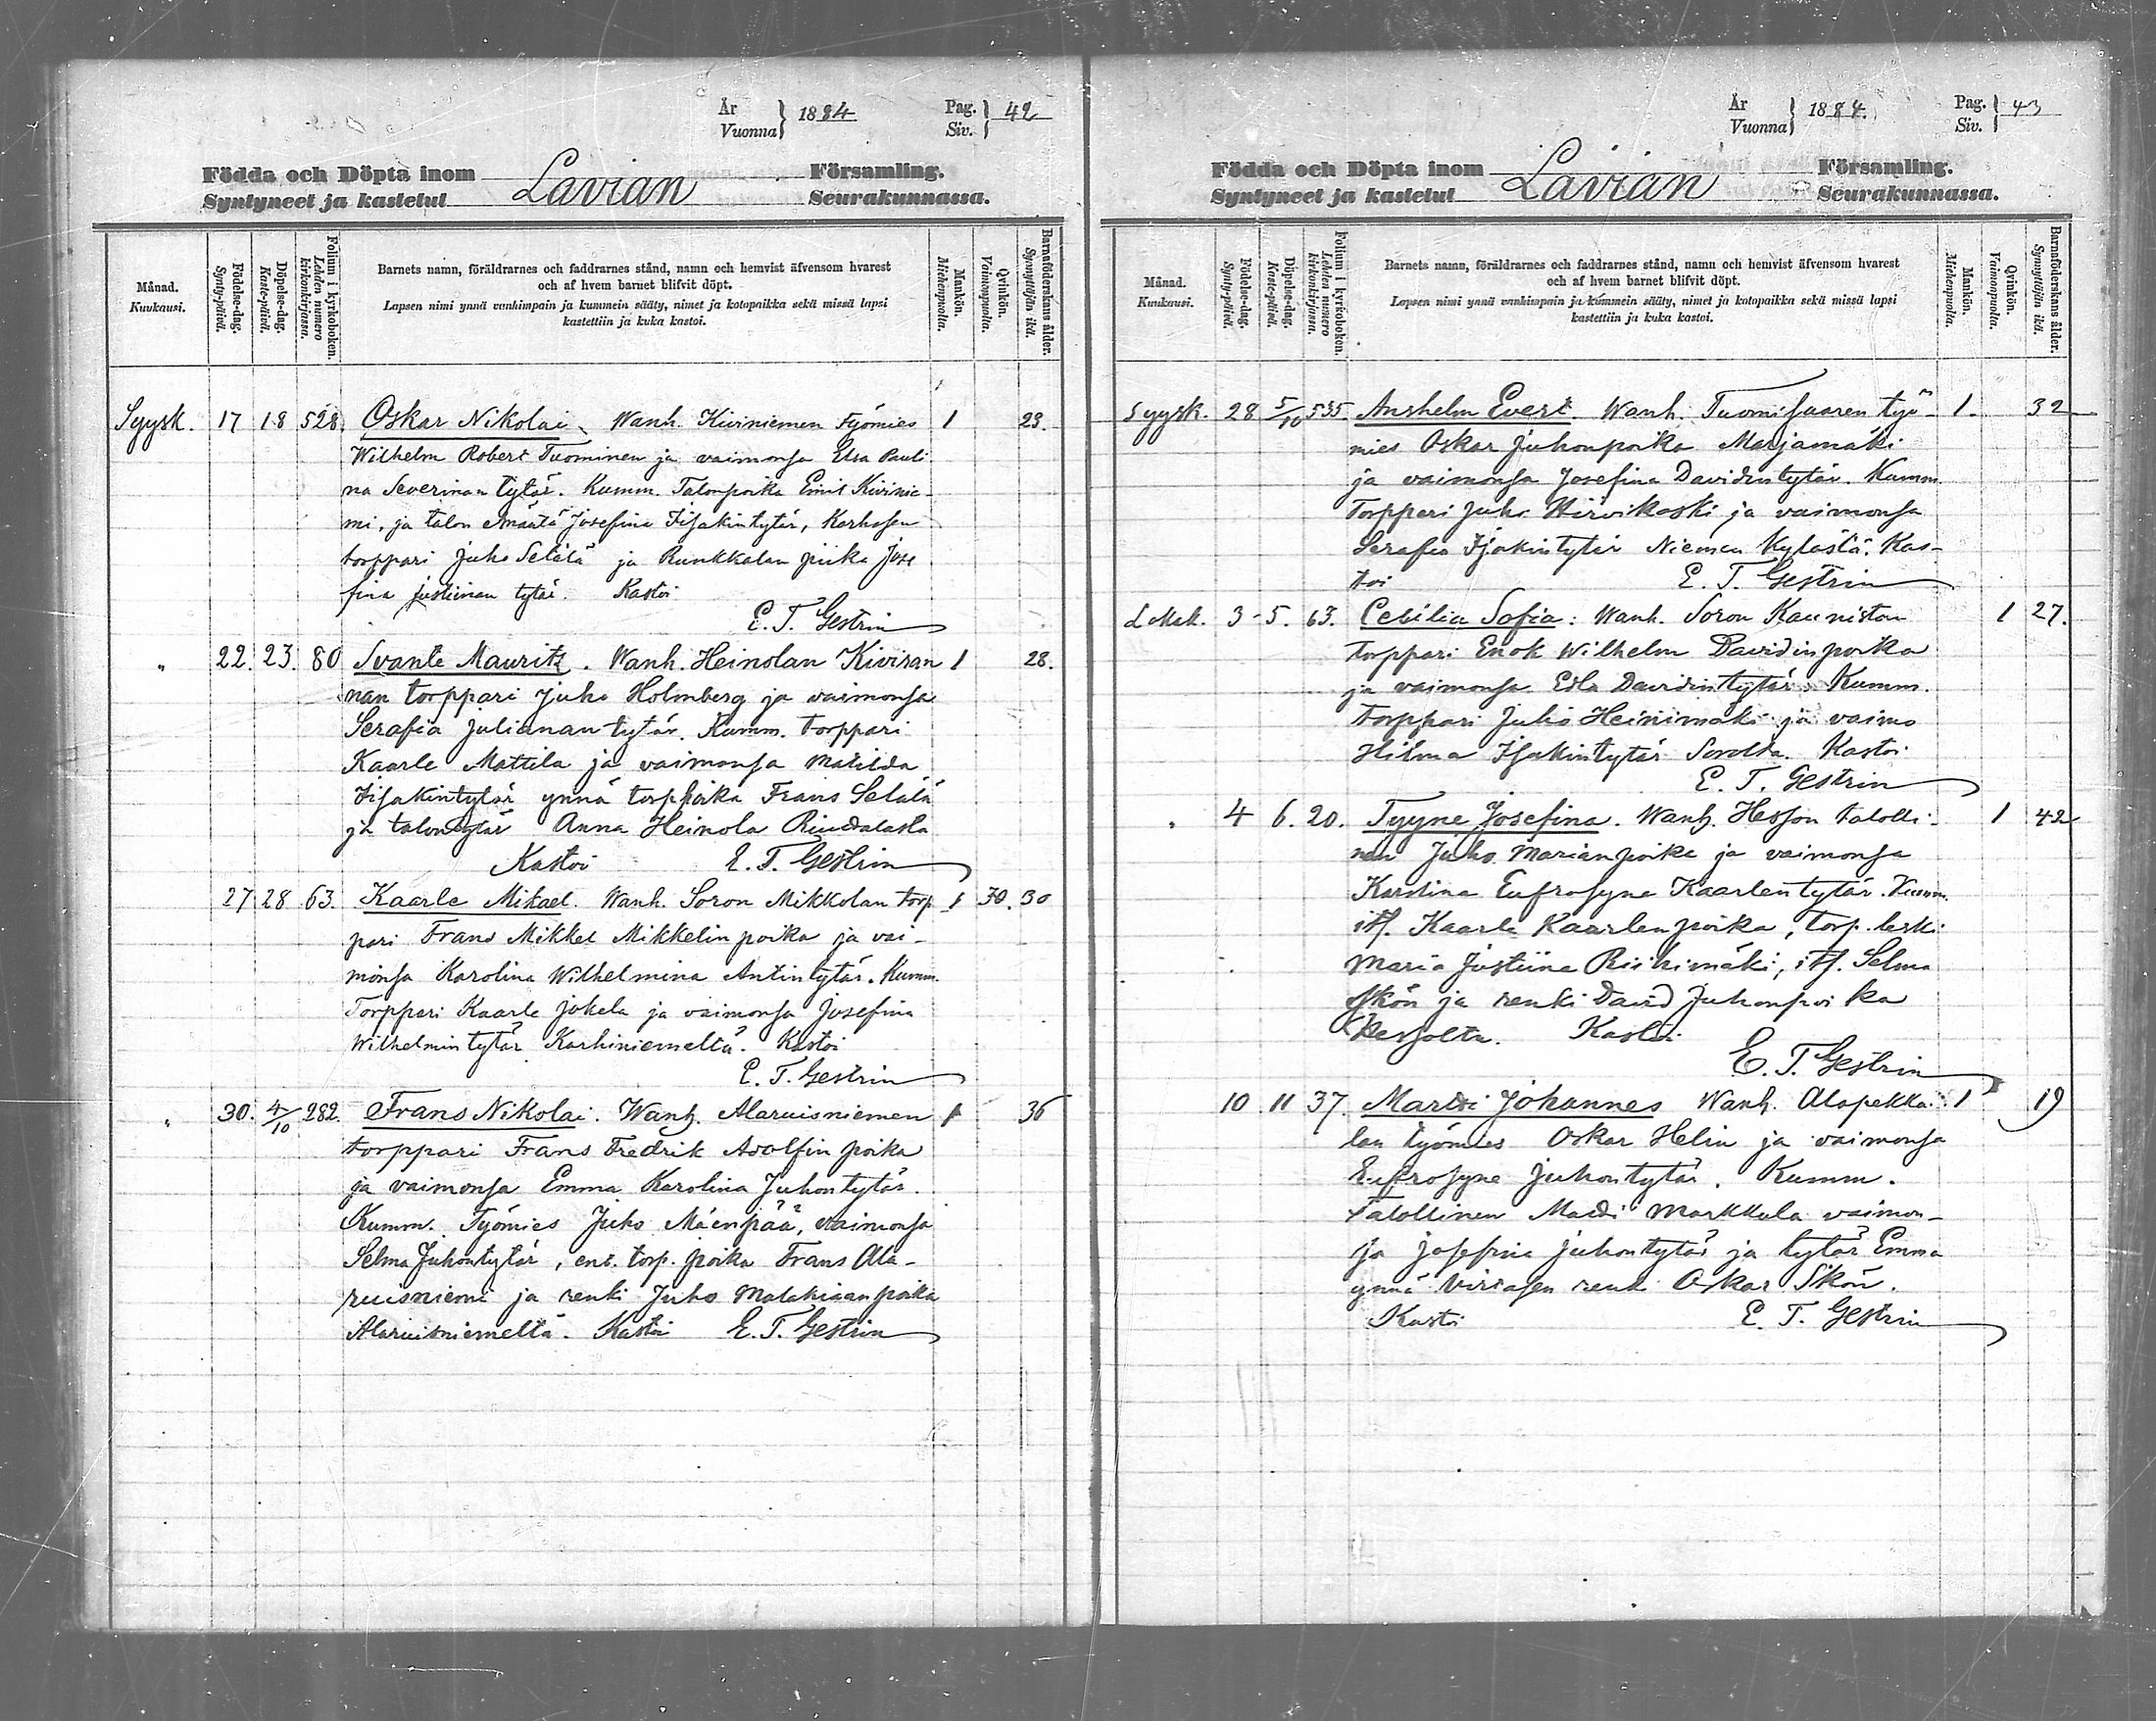 År
Vuonna } 1884 Pag.
Siv. } 42
Födda och Döpta inom Lavian Församling.
Syntyneet ja kastetut Seurakunnassa.
Månad.
Kuukausi.
Födelse-dag.
Synty-päivä.
Döpelse-dag.
Kaste-päivä.
Folium i kyrkoboken.
Lehden numero kirkonkirjassa.
Barnets namn, föräldrarnes och faddrarnes stånd, namn och hemvist äfvensom hvarest
och af hvem barnet blifvit döpt.
Lapsen nimi ynnä vanhimpain ja kummein sääty, nimet ja kotopaikka sekä missä lapsi
kastettiin ja kuka kastoi.
Mankön.
Miehenpuolta.
Qvinkön.
Vaimonpuolta.
Barnaföderskans ålder.
Synnyttäjän ikä.
Syysk. 17 18 528. Oskar Nikolai. Wanh. Kiviniemen Työmies 1 23.
Wilhelm Robert Tuominen ja vaimonsa Elsa Pauli
na Severinan tytär. Kumm. Talonpoika Emil Kivinie-
mi, ja talon emäntä Josefina Iisakintytär, Karhusen
torppari Juho Setälä ja Runkkalan piika Jose
fina Justiinan tytär. Kastoi
E. T. Gestrin
" 22. 23. 80 Svante Maurits. Wanh. Heinolan Kiviran 1 28.
nan torppari Juho Holmberg ja vaimonsa
Serafia Julianantytär. Kumm. torppari
Kaarle Mattila ja vaimonsa Matilda
Iisakintytär ynnä torp.poika Frans Setälä
ja talontytär Anna Heinola Riudalasta
Kastoi E. T. Gestrin
27 28 63. Kaarle Mikael. Wanh. Soron Mikkolan torp 1 30. 30
pari Frans Mikkel Mikkelin poika ja vai-
monsa Karolina Wilhelmina Antintytär. Kumm.
Torppari Kaarle Jokela ja vaimonsa Josefina
Wilhelmintytär Karhiniemeltä. Kastoi
E. T. Gestrin
" 30. 4/10 282. Frans Nikolai. Wanh. Alaruisniemen 1 36
torppari Frans Fredrik Adolfin poika
ja vaimonsa Emma Karolina Juhontytär.
Kumm. Työmies Juho Mäenpää, vaimonsa
Selma Juhontytär, ent. torp. poika Frans Ala-
ruisniemi ja renki Juho Malakiaanpoika
Alaruisniemeltä. Kastoi E. T. Gestrin
År
Vuonna } 1884. Pag.
Siv. } 43
Födda och Döpta inom Lavian Församling.
Syntyneet ja kastetut Seurakunnassa.
Månad.
Kuukausi.
Födelse-dag.
Synty-päivä.
Döpelse-dag.
Kaste-päivä.
Folium i kyrkoboken.
Lehden numero kirkonkirjassa.
Barnets namn, föräldrarnes och faddrarnes stånd, namn och hemvist äfvensom hvarest
och af hvem barnet blifvit döpt.
Lapsen nimi ynnä vanhimpain ja kummein sääty, nimet ja kotopaikka sekä missä lapsi
kastettiin ja kuka kastoi.
Mankön.
Miehenpuolta.
Qvinkön.
Vaimonpuolta.
Barnaföderskans ålder.
Synnyttäjän ikä.
Syysk. 28 5/10 535. Anshelm Evert. Wanh. Tuomisaaren työ- 1. 32
mies Oskar Juhonpoika Marjamäki
ja vaimonsa Josefina Davidintytär. Kumm.
Torppari Juho Hirvikoski ja vaimonsa
Serafia Isakintytär Niemen kylästä. Kas-
toi E. T. Gestrin
Lokak. 3 5. 63. Cecilia Sofia: Wanh. Soron Kauniston 1 27.
torppari Enok Wilhelm Davidinpoika
ja vaimonsa Edla Davidintytär. Kumm.
torppari Juho Heinimäki ja vaimo
Hilma Isakintytär Sorolta. Kastoi
E. T. Gestrin
" 4 6. 20. Tyyne Josefina. Wanh. Hesson talolli- 1 42
nen Juho Marianpoika ja vaimonsa
Karolina Eufrosyne Kaarlentytär. Kumm.
its. Kaarle Kaarlenpoika, torp. leski
Maria Justiina Riihimäki, its. Selma
Skön ja renki David Juhonpoika
Hessolta. Kastoi
E. T. Gestrin
10 11 37. Martti Johannes Wanh. Alapekka 1 19
lan työmies Oskar Helin ja vaimonsa
Eufrosyne Juhontytär. Kumm.
Talollinen Matti Markkula vaimon-
sa Josefina Juhontytär ja tytär Emma
ynnä Virtasen renki Oskar Skön.
Kastoi E. T. Gestrin